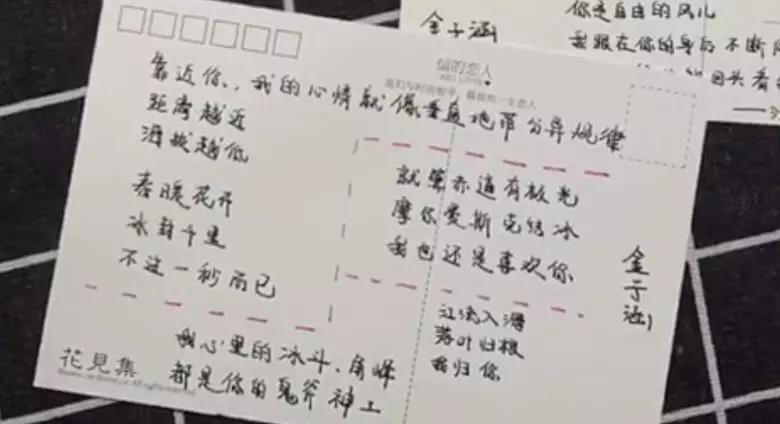 金子涵
你是自由的风儿
我跟在你的身后 不断
回头看
信的恋人
靠近你，我的心情就像垂直地带分异规律
距离越近
海拔越低
春暖花开
冰封千里
不过一秒而已
就算赤道有极光
摩尔曼斯克结冰
我也还是喜欢你
金子涵
江流入海
落叶归根
我归你
我心里的冰斗、角峰
都是你的鬼斧神工
花見集